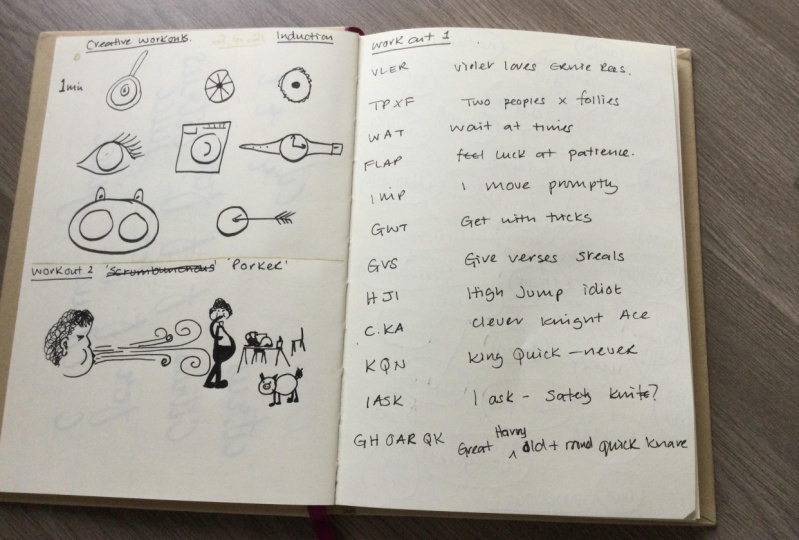 Creative Workouts. Induction
1min
Workout 2 'scrumbunchous' 'Porker'
work out 1
VLER violet loves Ernie Rees.
TPXF Two peoples x follies
WAT wait at times
FLAP feel luck at patience.
IMP I move promptly
GWT Get with tricks
GVS Give verses steals
HJI High Jump idiot
C.KA clever knight Ace
KQN king Quick - never
IASK I ask - safety knife?
GH OAR QK Great Harry old + quick knave